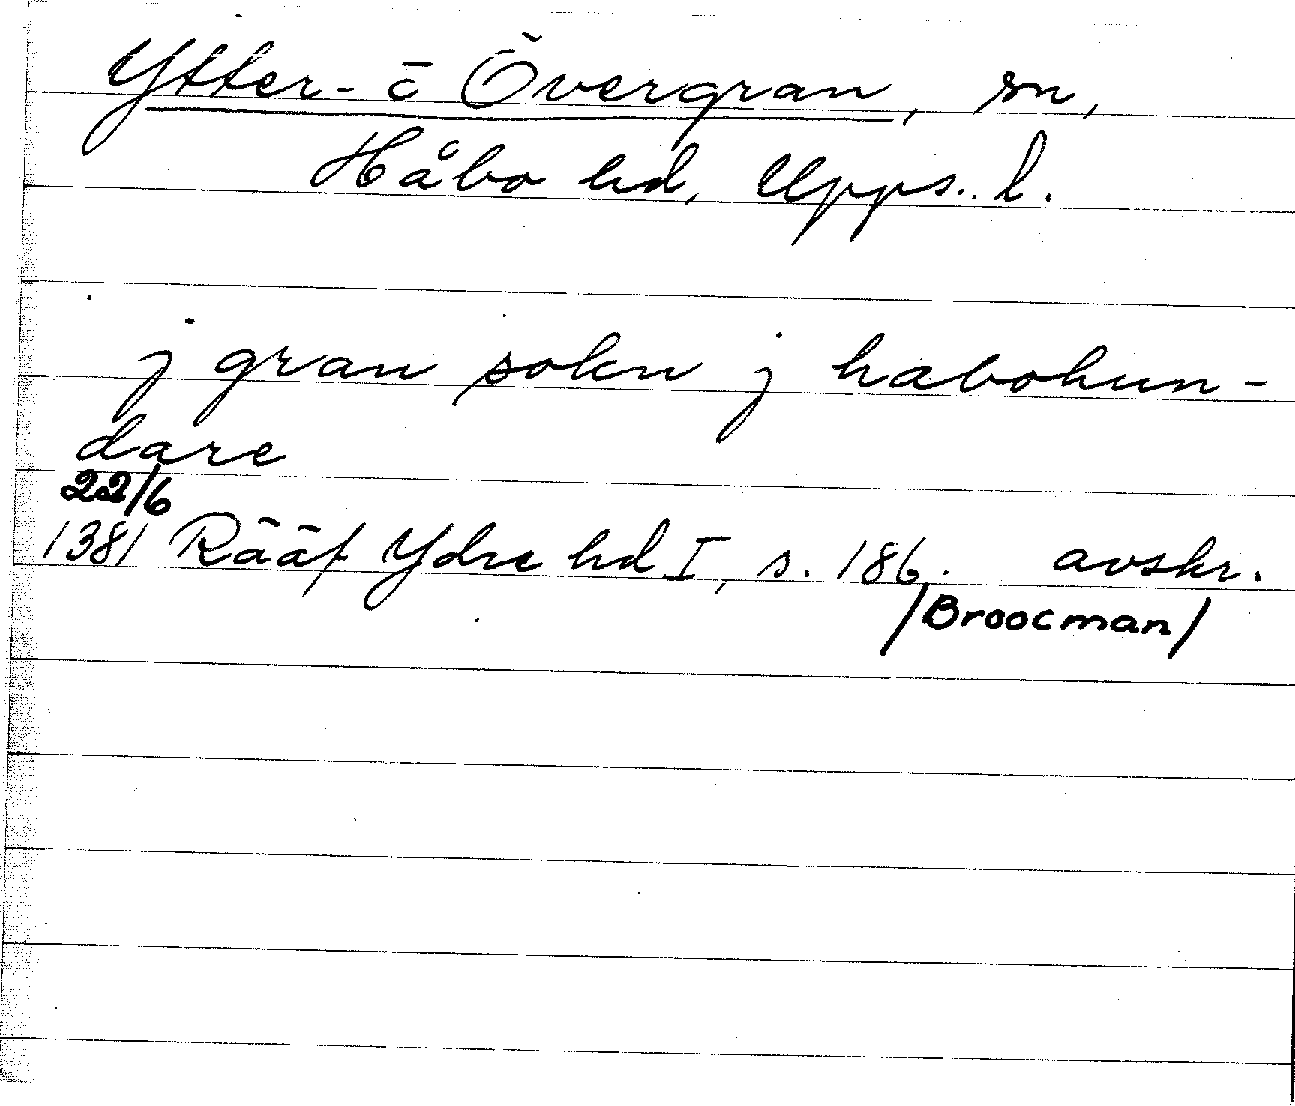 Ytter- o̅ Övergran, sn,
Håbo hd, Upps. l.
j gran sokn j habohun-
dare
22/6
1381 Rääf Ydre hd I, s. 186. avskr.
/Broocman/